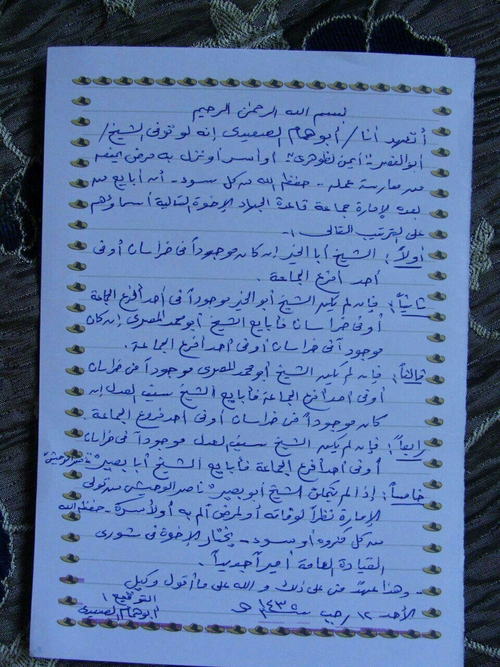 بسم الله الرحمن الرحيم
أتعهد أنا / أبو همام الصعيدى إنه لو توفى الشيخ /
أبو الفضل أيمن الظواهرى أو أسر أو نزل به مرض يمنعه
من ممارسة عمله - حفظه الله من كل سوء - أن أبايع من
بعده لإمارة جماعة قاعدة الجهاد الإخوة التالية أسماؤهم
على الترتيب التالى :-
أولاً : الشيخ أبا الخير إن كان موجوداً فى خراسان أو فى
أحد أفرع الجماعة .
ثانياً : فإن لم يكن الشيخ أبو الخير موجوداً فى أحد أفرع الجماعة
أو فى خراسان فأبايع الشيخ أبو محمد المصرى إن كان
موجوداً فى خراسان أو فى أحد أفرع الجماعة .
ثالثاً : فإن لم يكن الشيخ أبو محمد المصرى موجوداً فى خراسان
أو فى أحد أفرع الجماعة فأبايع الشيخ سيف العدل إن
كان موجوداً فى خراسان أو فى أحد فروع الجماعة
رابعاً : فإن لم يكن الشيخ سيف العدل موجوداً فى خراسان
أو فى أحد أفرع الجماعة فأبايع الشيخ أبا بصير " ناصر الوحيشى "
خامساً : إذا لم يتمكن الشيخ أبو بصير " ناصر الوحيشى من تولى
الإمارة نظراً لوفاته أو لمرض ألم به أو لأسره - حفظه الله
من كل مكروه أو سوء - يختار الإخوة فى شورى
القيادة العامة أميراً جديداً .
- وهذا عهد منى على ذلك والله على ما أقول وكيل
الأحد ١٢ / رجب سنة ١٤٣٥ هـ التوقيع /
أبو همام الصعيدى